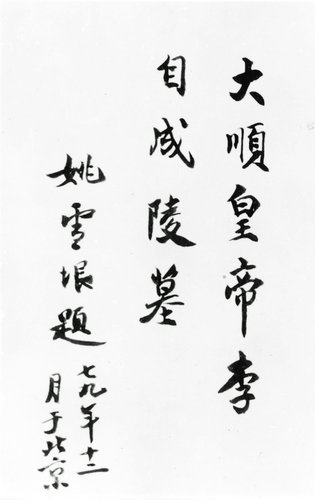 大順皇帝李
自成陵墓
姚雪垠題
七九年十二
月于北京